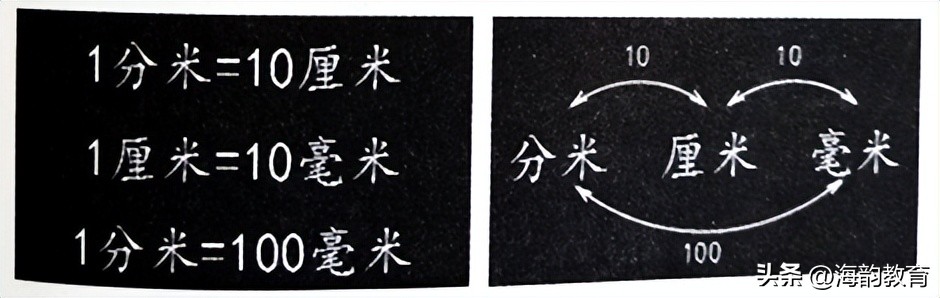 1分米=10厘米
1厘米=10毫米
1分米=100毫米
10 10
分米 厘米 毫米
100
头条 @海韵教育